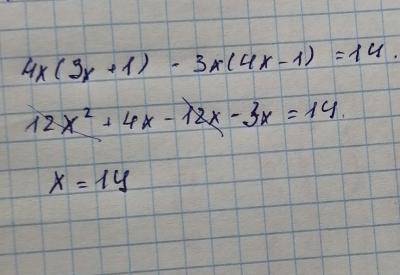 4x(3x+1) - 3x(4x-1) = 14.
12x² + 4x - 12x - 3x = 14.
x = 14